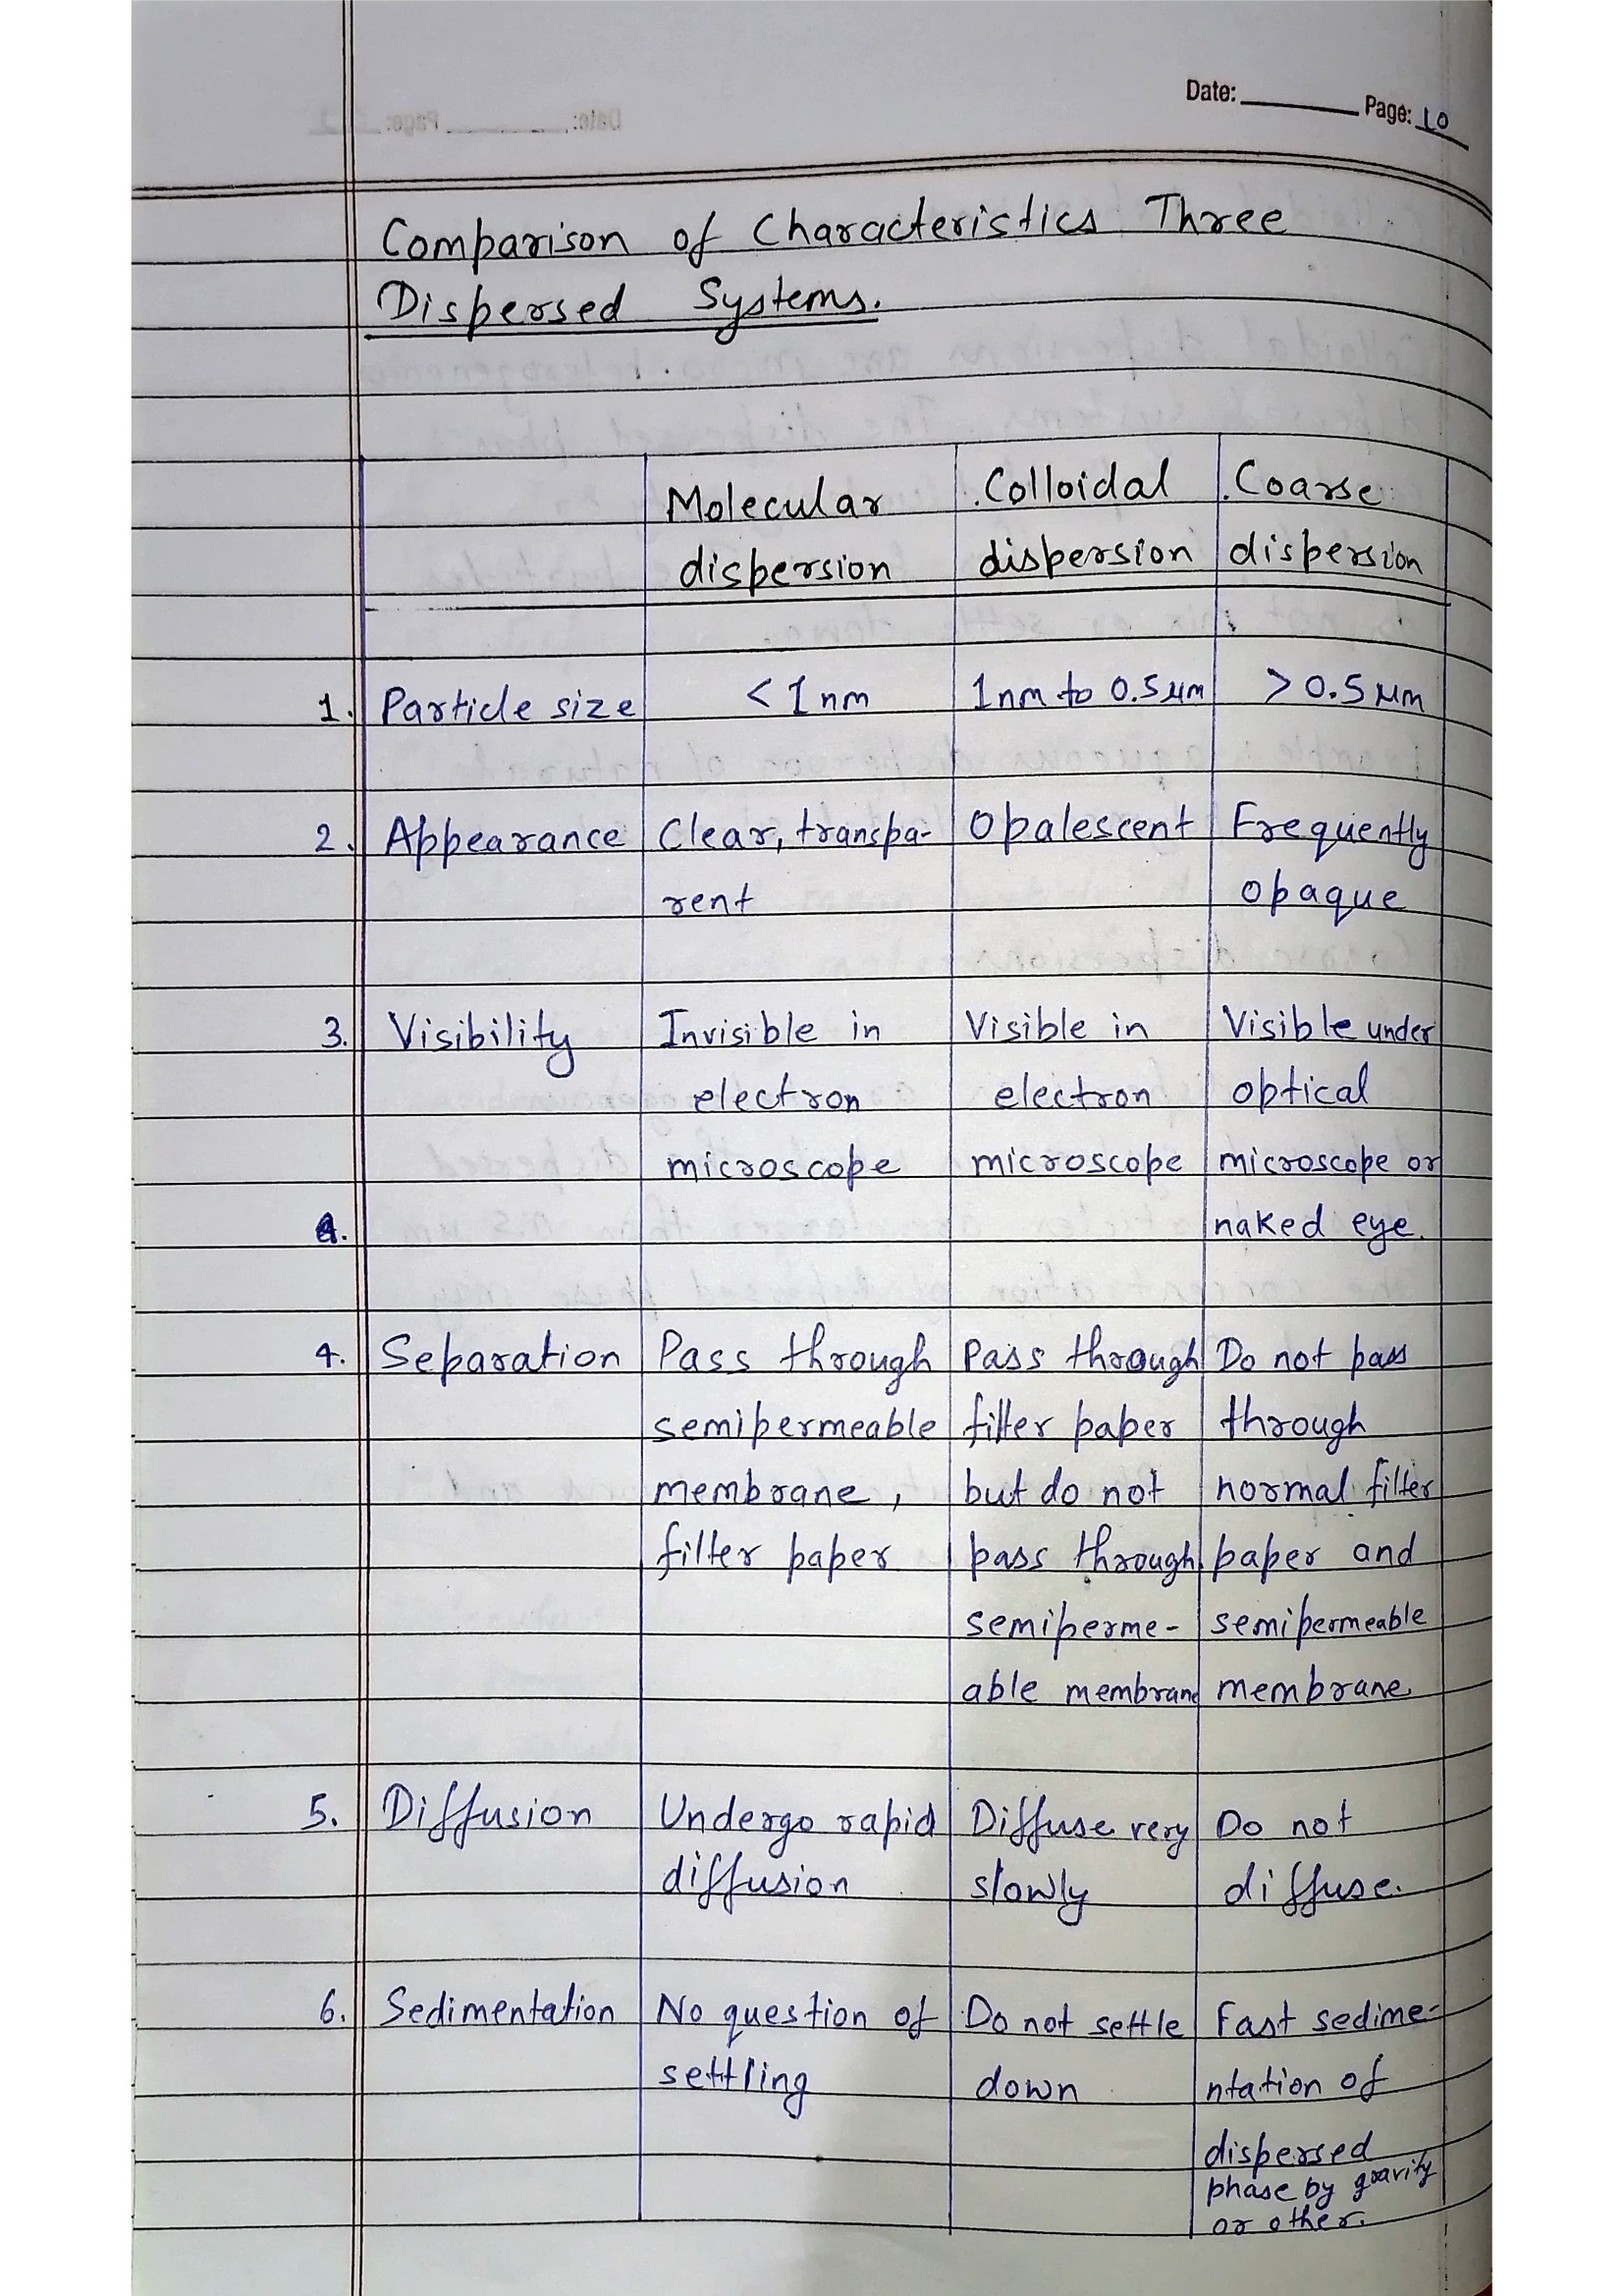 Date: Page: 10
Comparison of Characteristics Three
Dispersed Systems.
Molecular dispersion
Colloidal dispersion
Coarse dispersion
1. Particle size
< 1 nm
1nm to 0.5 μm
> 0.5 μm
2. Appearance
Clear, transpa-
rent
Opalescent
Frequently
opaque
3. Visibility
Invisible in
electron
microscope
Visible in
electron
microscope
Visible under
optical
microscope or
naked eye.
4. Separation
Pass through
semipermeable
membrane,
filter paper
Pass through
filter paper
but do not
pass through
semiperme-
able membrane
Do not pass
through
normal filter
paper and
semipermeable
membrane.
5. Diffusion
Undergo rapid
diffusion
Diffuse very
slowly
Do not
diffuse.
6. Sedimentation
No question of
settling
Do not settle
down
Fast sedime-
ntation of
dispersed
phase by gravity
or other.